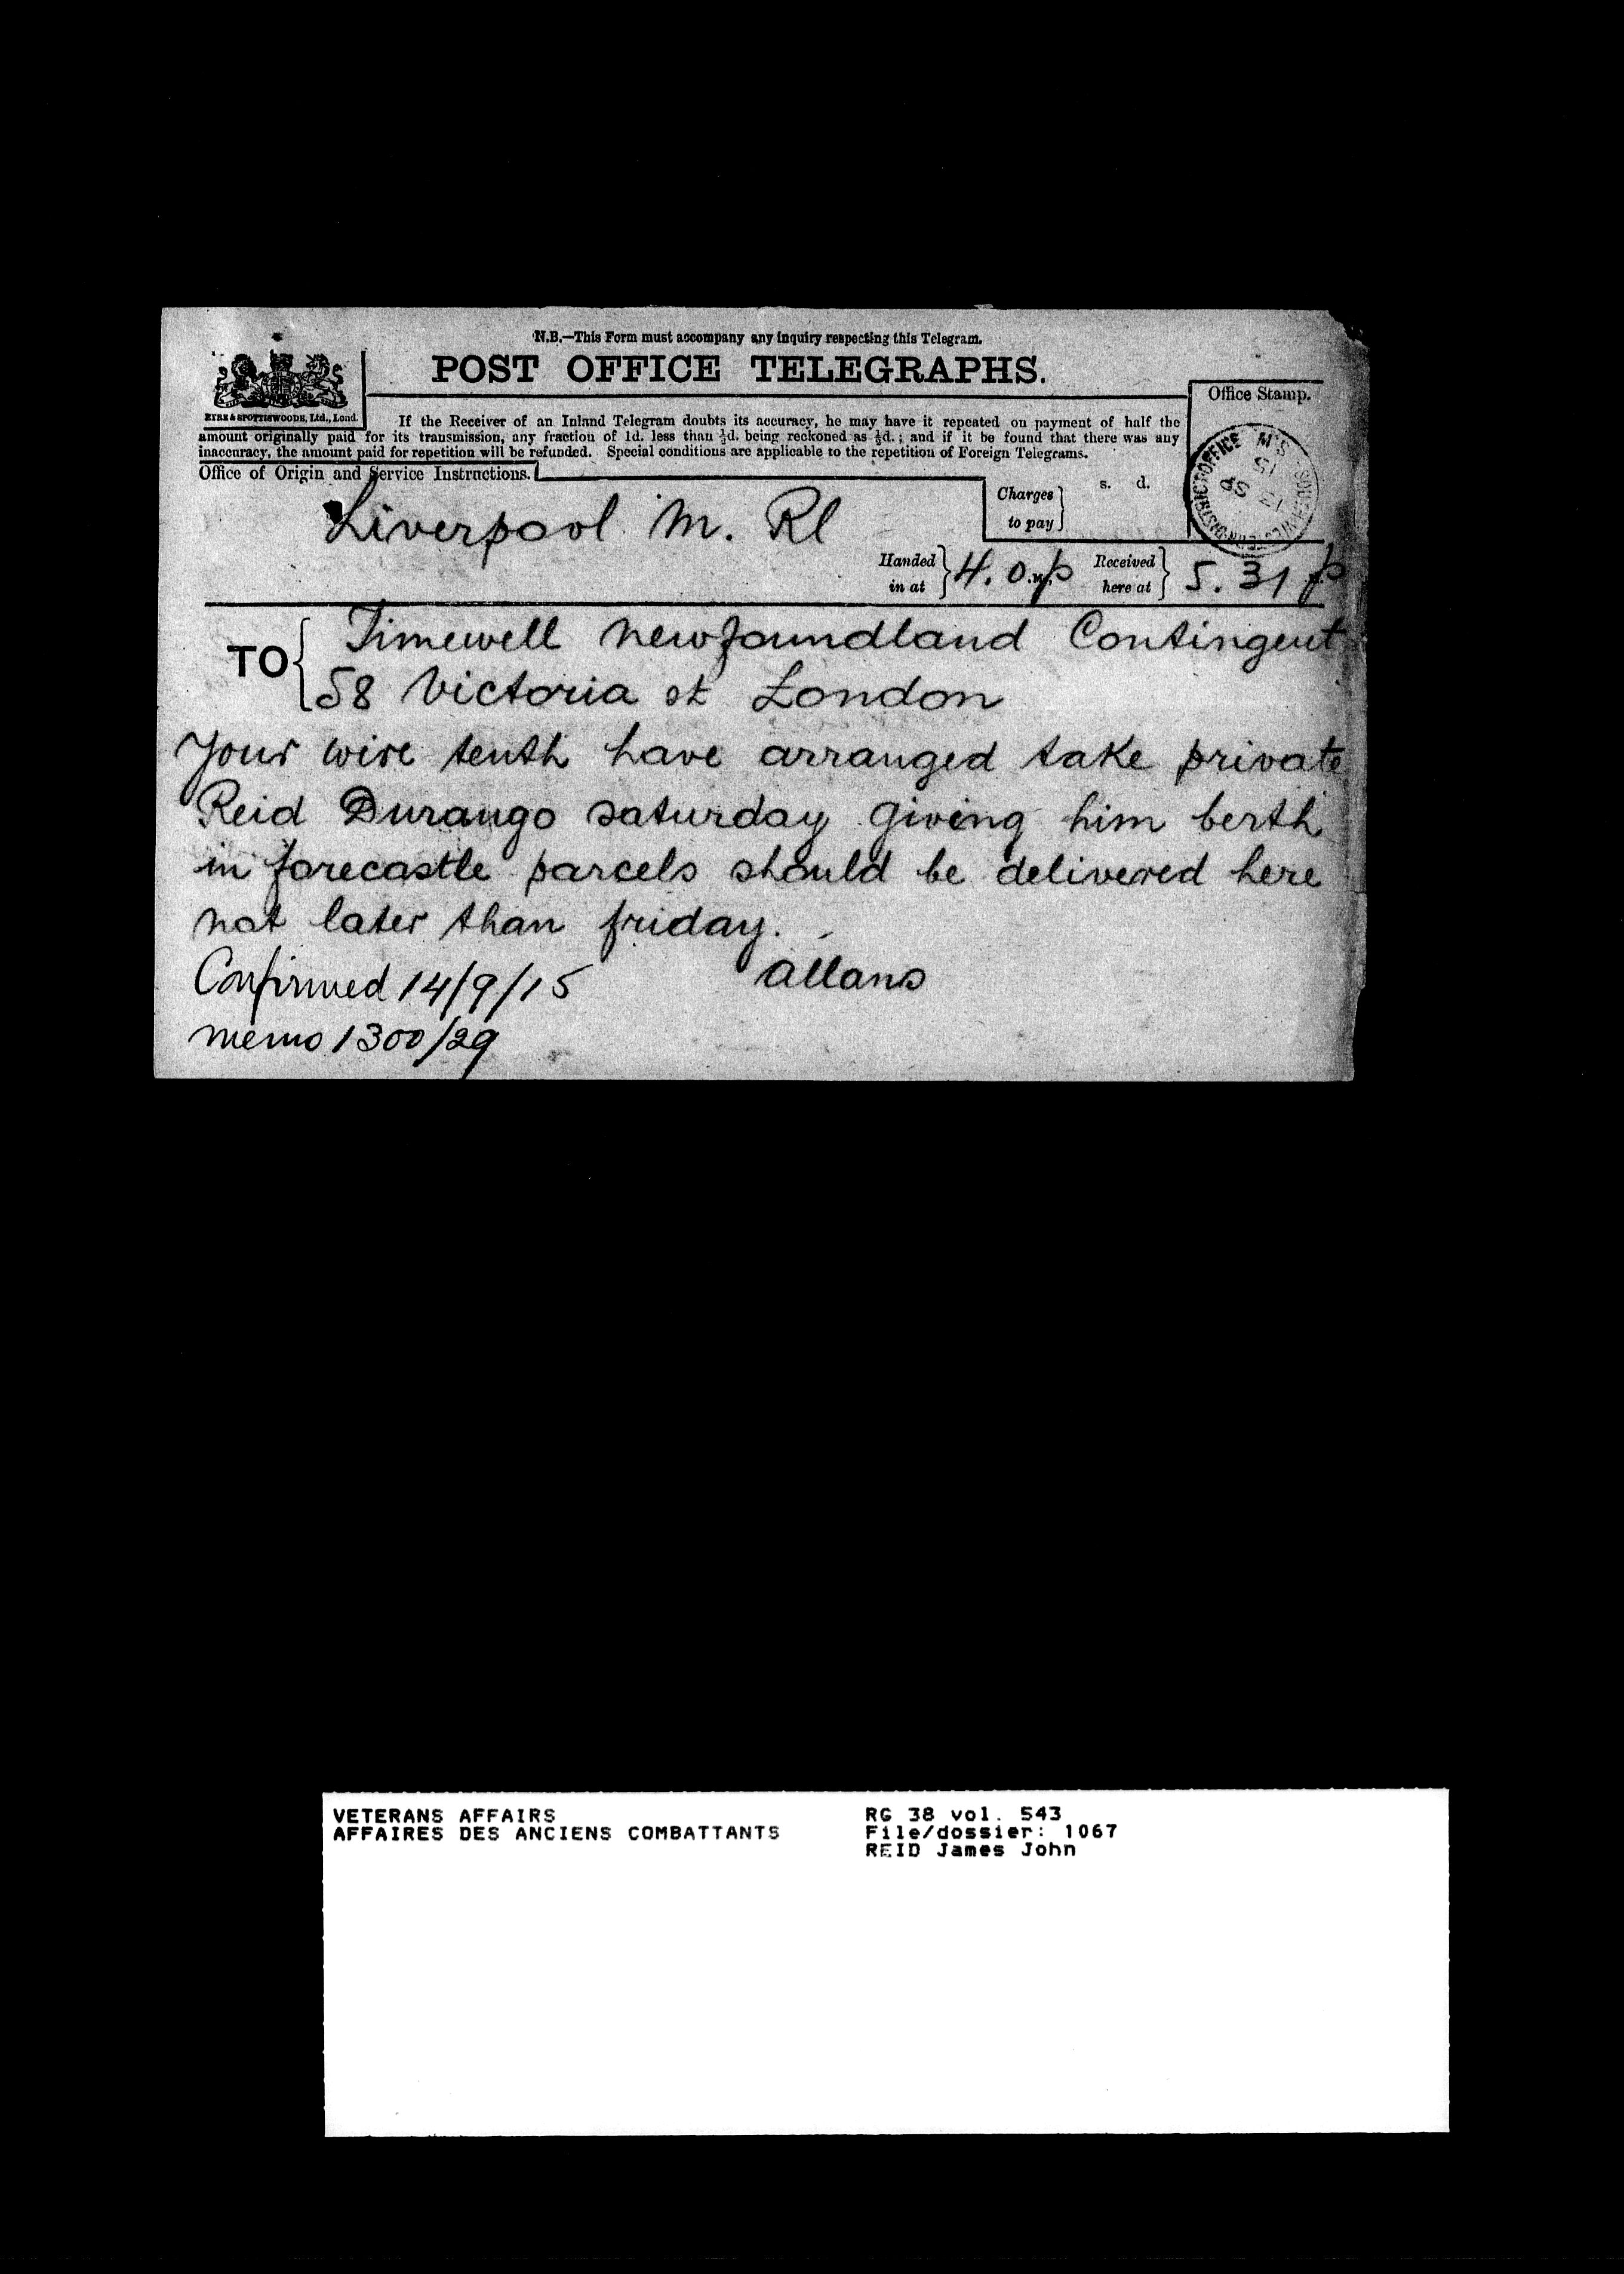 N.B.—This Form must accompany any inquiry respecting this Telegram.
POST OFFICE TELEGRAPHS.
EYRE & SPOTTISWOODE, Ltd., Lond.
Office Stamp.
If the Receiver of an Inland Telegram doubts its accuracy, he may have it repeated on payment of half the
amount originally paid for its transmission, any fraction of 1d. less than ½d. being reckoned as ½d.; and if it be found that there was any
inaccuracy, the amount paid for repetition will be refunded. Special conditions are applicable to the repetition of Foreign Telegrams.
Office of Origin and Service Instructions.
DISTRICT OFFICE S.W.
13 SP
15
Charges to pay } s. d.
Liverpool M. Rl
Handed in at } 4.0 p Received here at } 5.31 p
TO { Timewell Newfoundland Contingent
58 Victoria st London
Your wire tenth have arranged take private
Reid Durango saturday giving him berth
in forecastle parcels should be delivered here
not later than friday.
Allans
Confirmed 14/9/15
memo 1300/29
VETERANS AFFAIRS RG 38 vol. 543
AFFAIRES DES ANCIENS COMBATTANTS File/dossier: 1067
REID James John